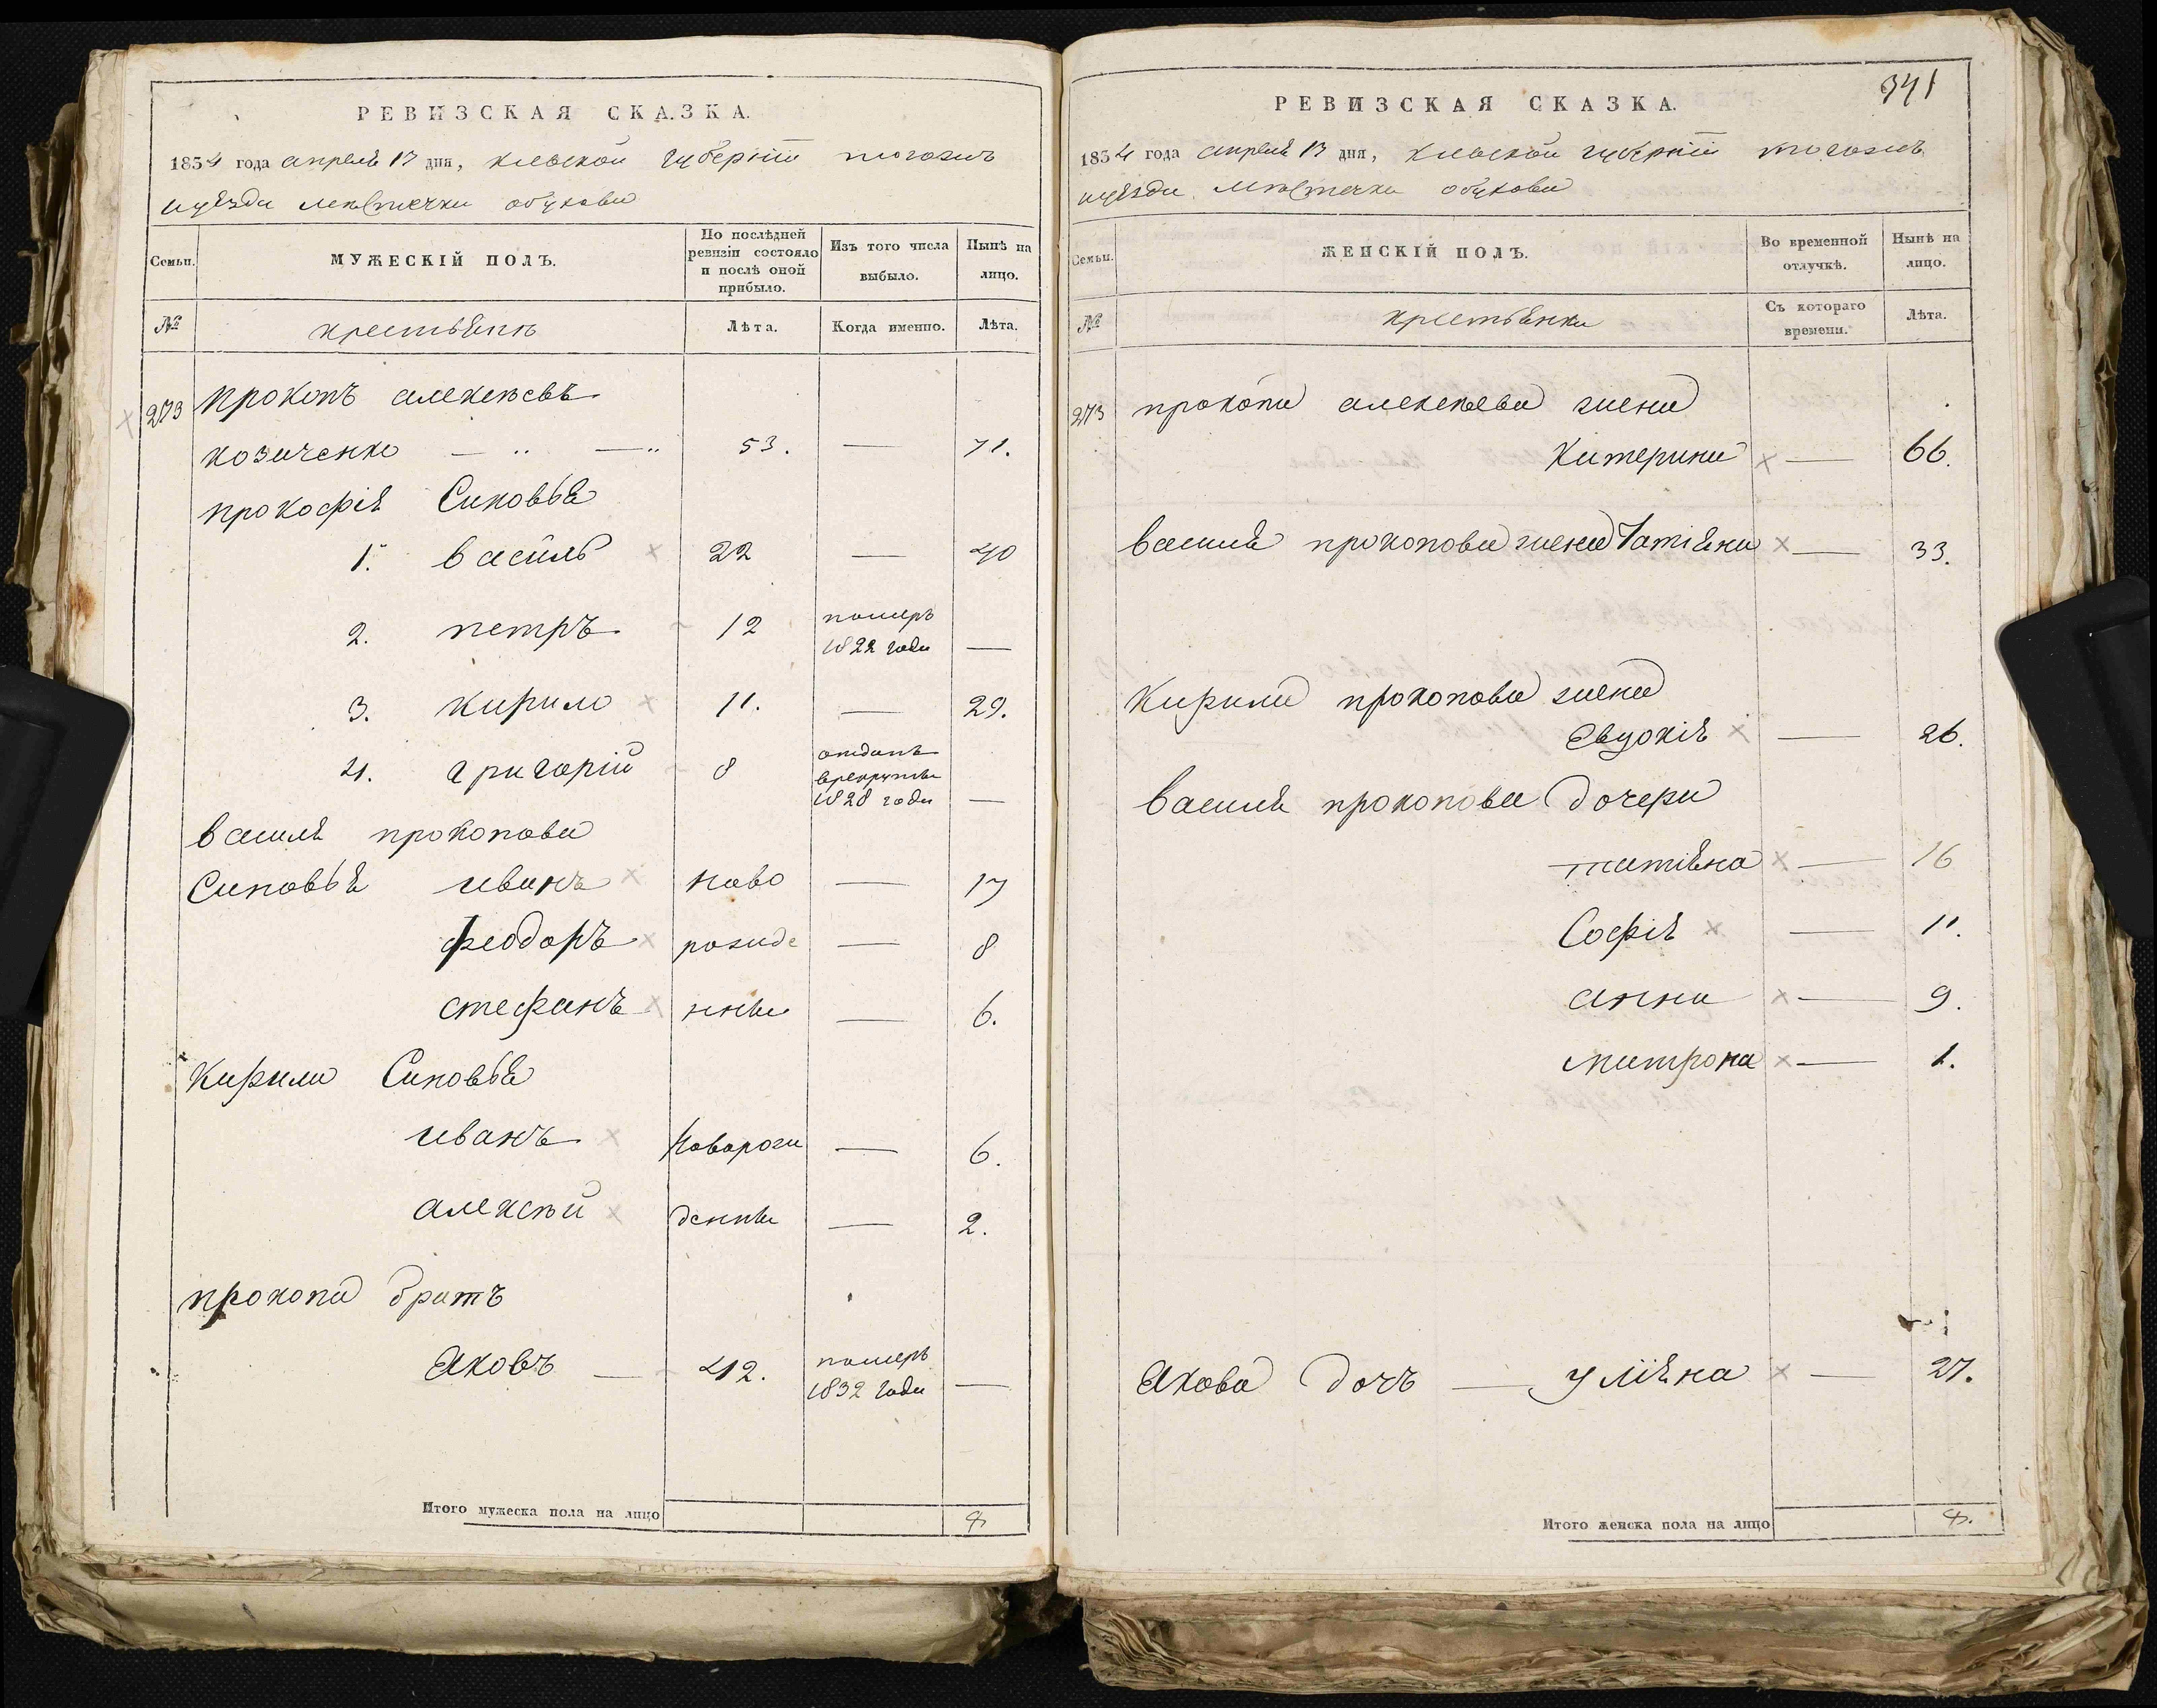 РЕВИЗСКАЯ СКАЗКА.
1834 года апреля 13 дня, киевской губернiи
уезда местечка обухова
Семьи.
МУЖЕСКІЙ ПОЛЪ.
По послѣдней ревизіи состояло и послѣ оной прибыло.
Изъ того числа выбыло.
Нынѣ на лицо.
№
крестьянъ
Лѣта.
Когда именно.
Лѣта.
273 прокопъ алексѣевъ
козиченко — „ — „ 53. — 71.
прокофія Синовья
1. василь 22 — 40
2. петръ 12 померъ 1822 года —
3. кирило 11. — 29.
4. григорій 8 отданъ врекруты 1828 года —
василя прокопова
Синовья иванъ ново — 17
феодоръ рожде — 8
стефанъ нны — 6.
Кирила Синовья
иванъ новорож — 6.
алексѣй денны — 2.
прокопа братъ
Яковъ — 42. померъ 1832 года —
Итого мужеска пола на лицо 8
341
РЕВИЗСКАЯ СКАЗКА.
1834 года апреля 13 дня, киевской губернiи
уезда местечка обухова
Семьи.
ЖЕНСКІЙ ПОЛЪ.
Во временной отлучкѣ.
Нынѣ на лицо.
№
крестьянки
Съ котораго времени.
Лѣта.
273 прокопа алексеева жена
Катерина — 66.
василя прокопова жена Татіяна — 33.
Кирила прокопова жена
Євдокія — 26.
василя прокопова дочери
татіяна — 16
Софія — 11.
анна — 9.
матрона — 1.
Якова дочъ — Уліяна — 27.
Итого женска пола на лицо 8.